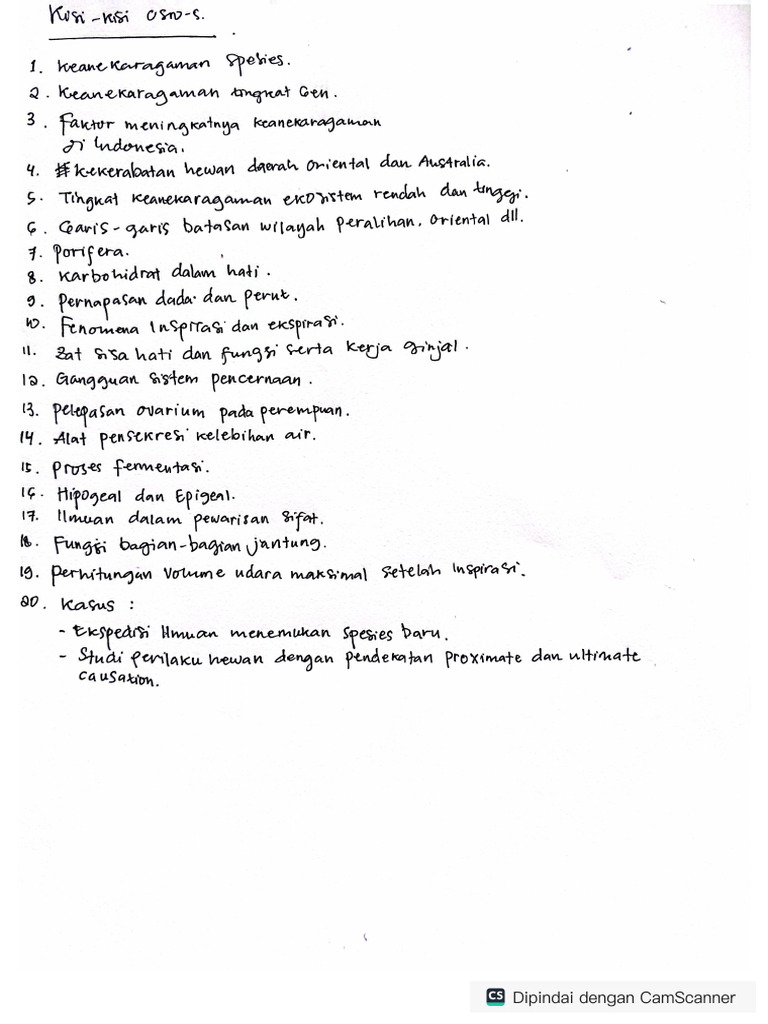 Kisi-kisi OSN-S.
1. Keanekaragaman Spesies.
2. Keanekaragaman tingkat Gen.
3. Faktor meningkatnya keanekaragaman
di Indonesia.
4. Kekerabatan hewan daerah oriental dan Australia.
5. Tingkat keanekaragaman ekosistem rendah dan tinggi.
6. Garis-garis batasan wilayah peralihan, oriental dll.
7. Porifera.
8. Karbohidrat dalam hati.
9. Pernapasan dada dan perut.
10. Fenomena Inspirasi dan ekspirasi.
11. Zat sisa hati dan fungsi serta kerja ginjal.
12. Gangguan sistem pencernaan.
13. Pelepasan ovarium pada perempuan.
14. Alat pensekresi kelebihan air.
15. Proses fermentasi.
16. Hipogeal dan Epigeal.
17. Ilmuan dalam pewarisan sifat.
18. Fungsi bagian-bagian jantung.
19. Perhitungan Volume udara maksimal setelah Inspirasi.
20. Kasus :
- Ekspedisi Ilmuan menemukan spesies baru.
- Studi perilaku hewan dengan pendekatan proximate dan ultimate
causation.
CS Dipindai dengan CamScanner